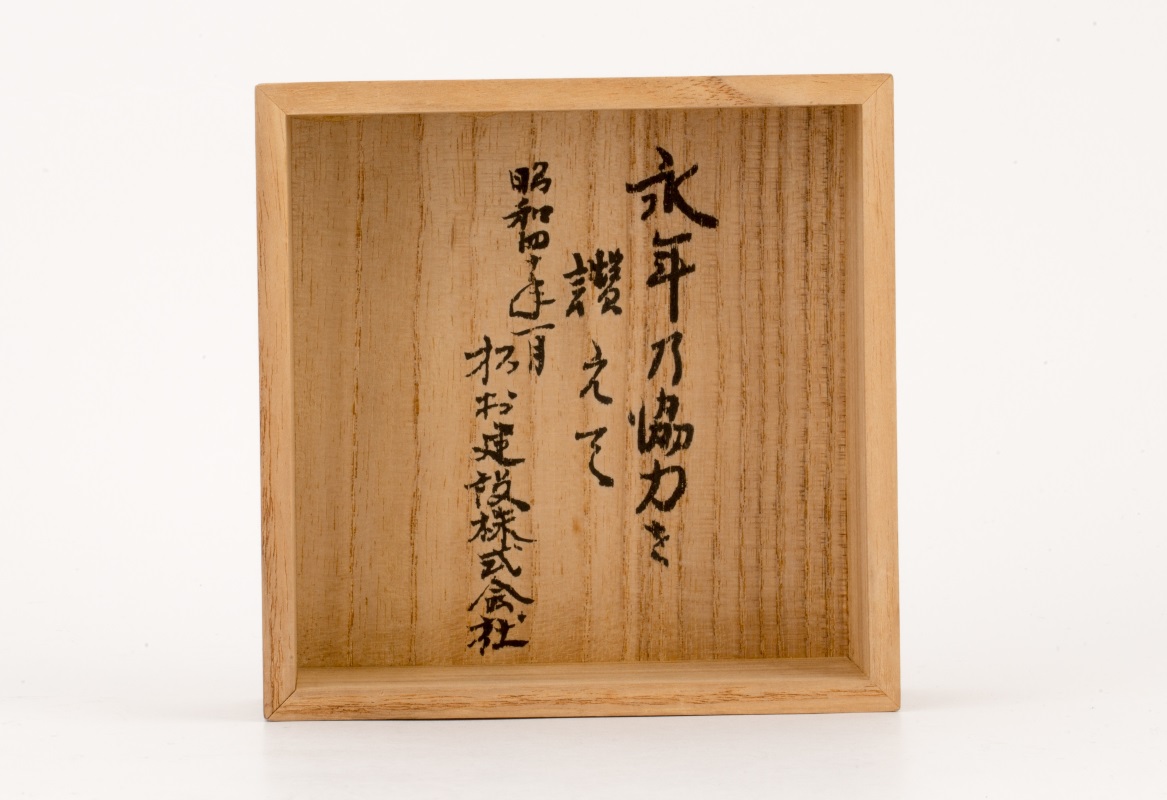 永年乃協力を
讃えて
昭和四十年一月
建設株式会社